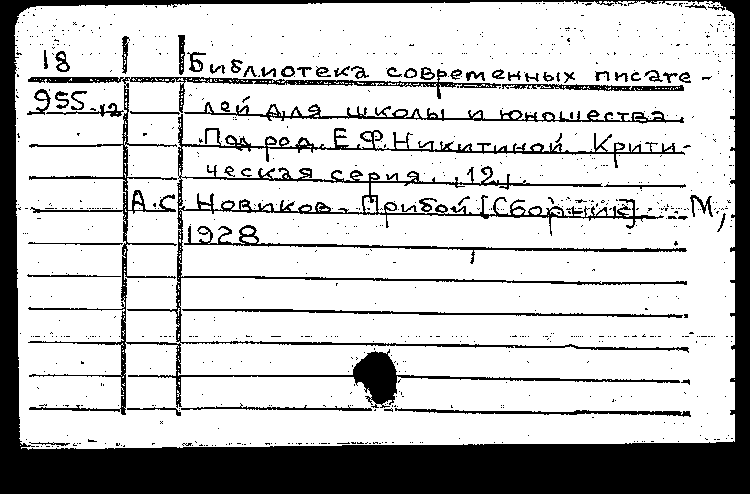 18 Библиотека современных писате-
955-12 лей для школы и юношества.
Под ред. Е.Ф.Никитиной. Крити-
ческая серия. [12].
А.С. Новиков-Прибой [Сборник]. М,
1928